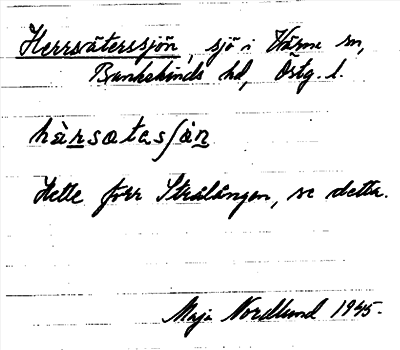 Herrsäterssjön, sjö i Värna sn,
Bankekinds hd, Östg. l.
hæ̀rsætasʃön
Hette förr Strålången, se detta.
Maja Nordlund 1945.